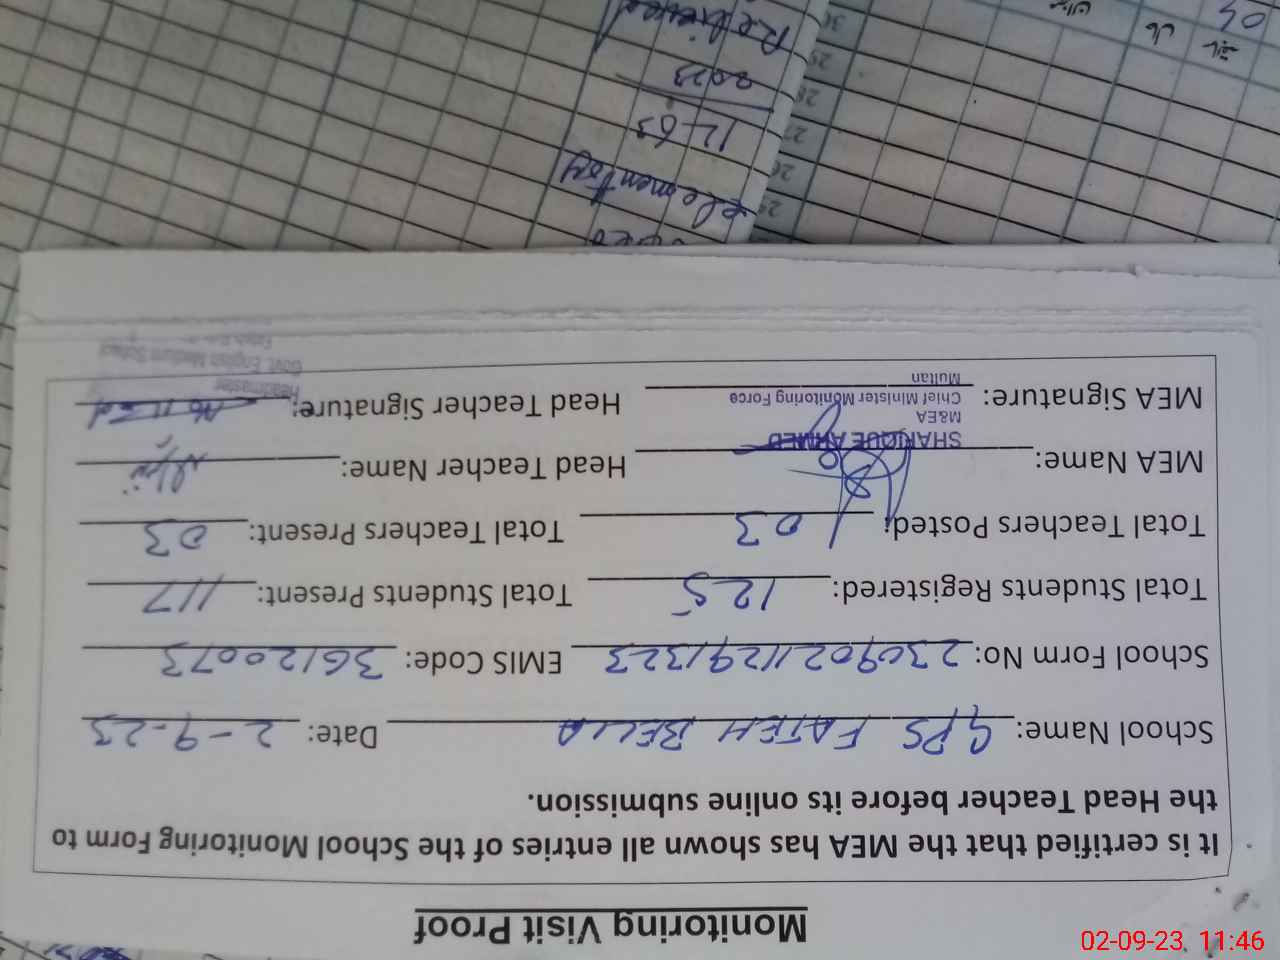 Monitoring Visit Proof
It is certified that the MEA has shown all entries of the School Monitoring Form to
the Head Teacher before its online submission.
School Name: GPS FATEH BELLA Date: 2-9-23
School Form No: 23090211291323 EMIS Code: 36120073
Total Students Registered: 125 Total Students Present: 117
Total Teachers Posted: 03 Total Teachers Present: 03
MEA Name: Head Teacher Name:
SHARIQUE AHMED
M&EA
Chief Minister Monitoring Force
Multan
MEA Signature: Head Teacher Signature:
Headmaster
Govt. English Medium School
elementry
2023
Relieved
25
26
27
28
29
30
04
02-09-23, 11:46